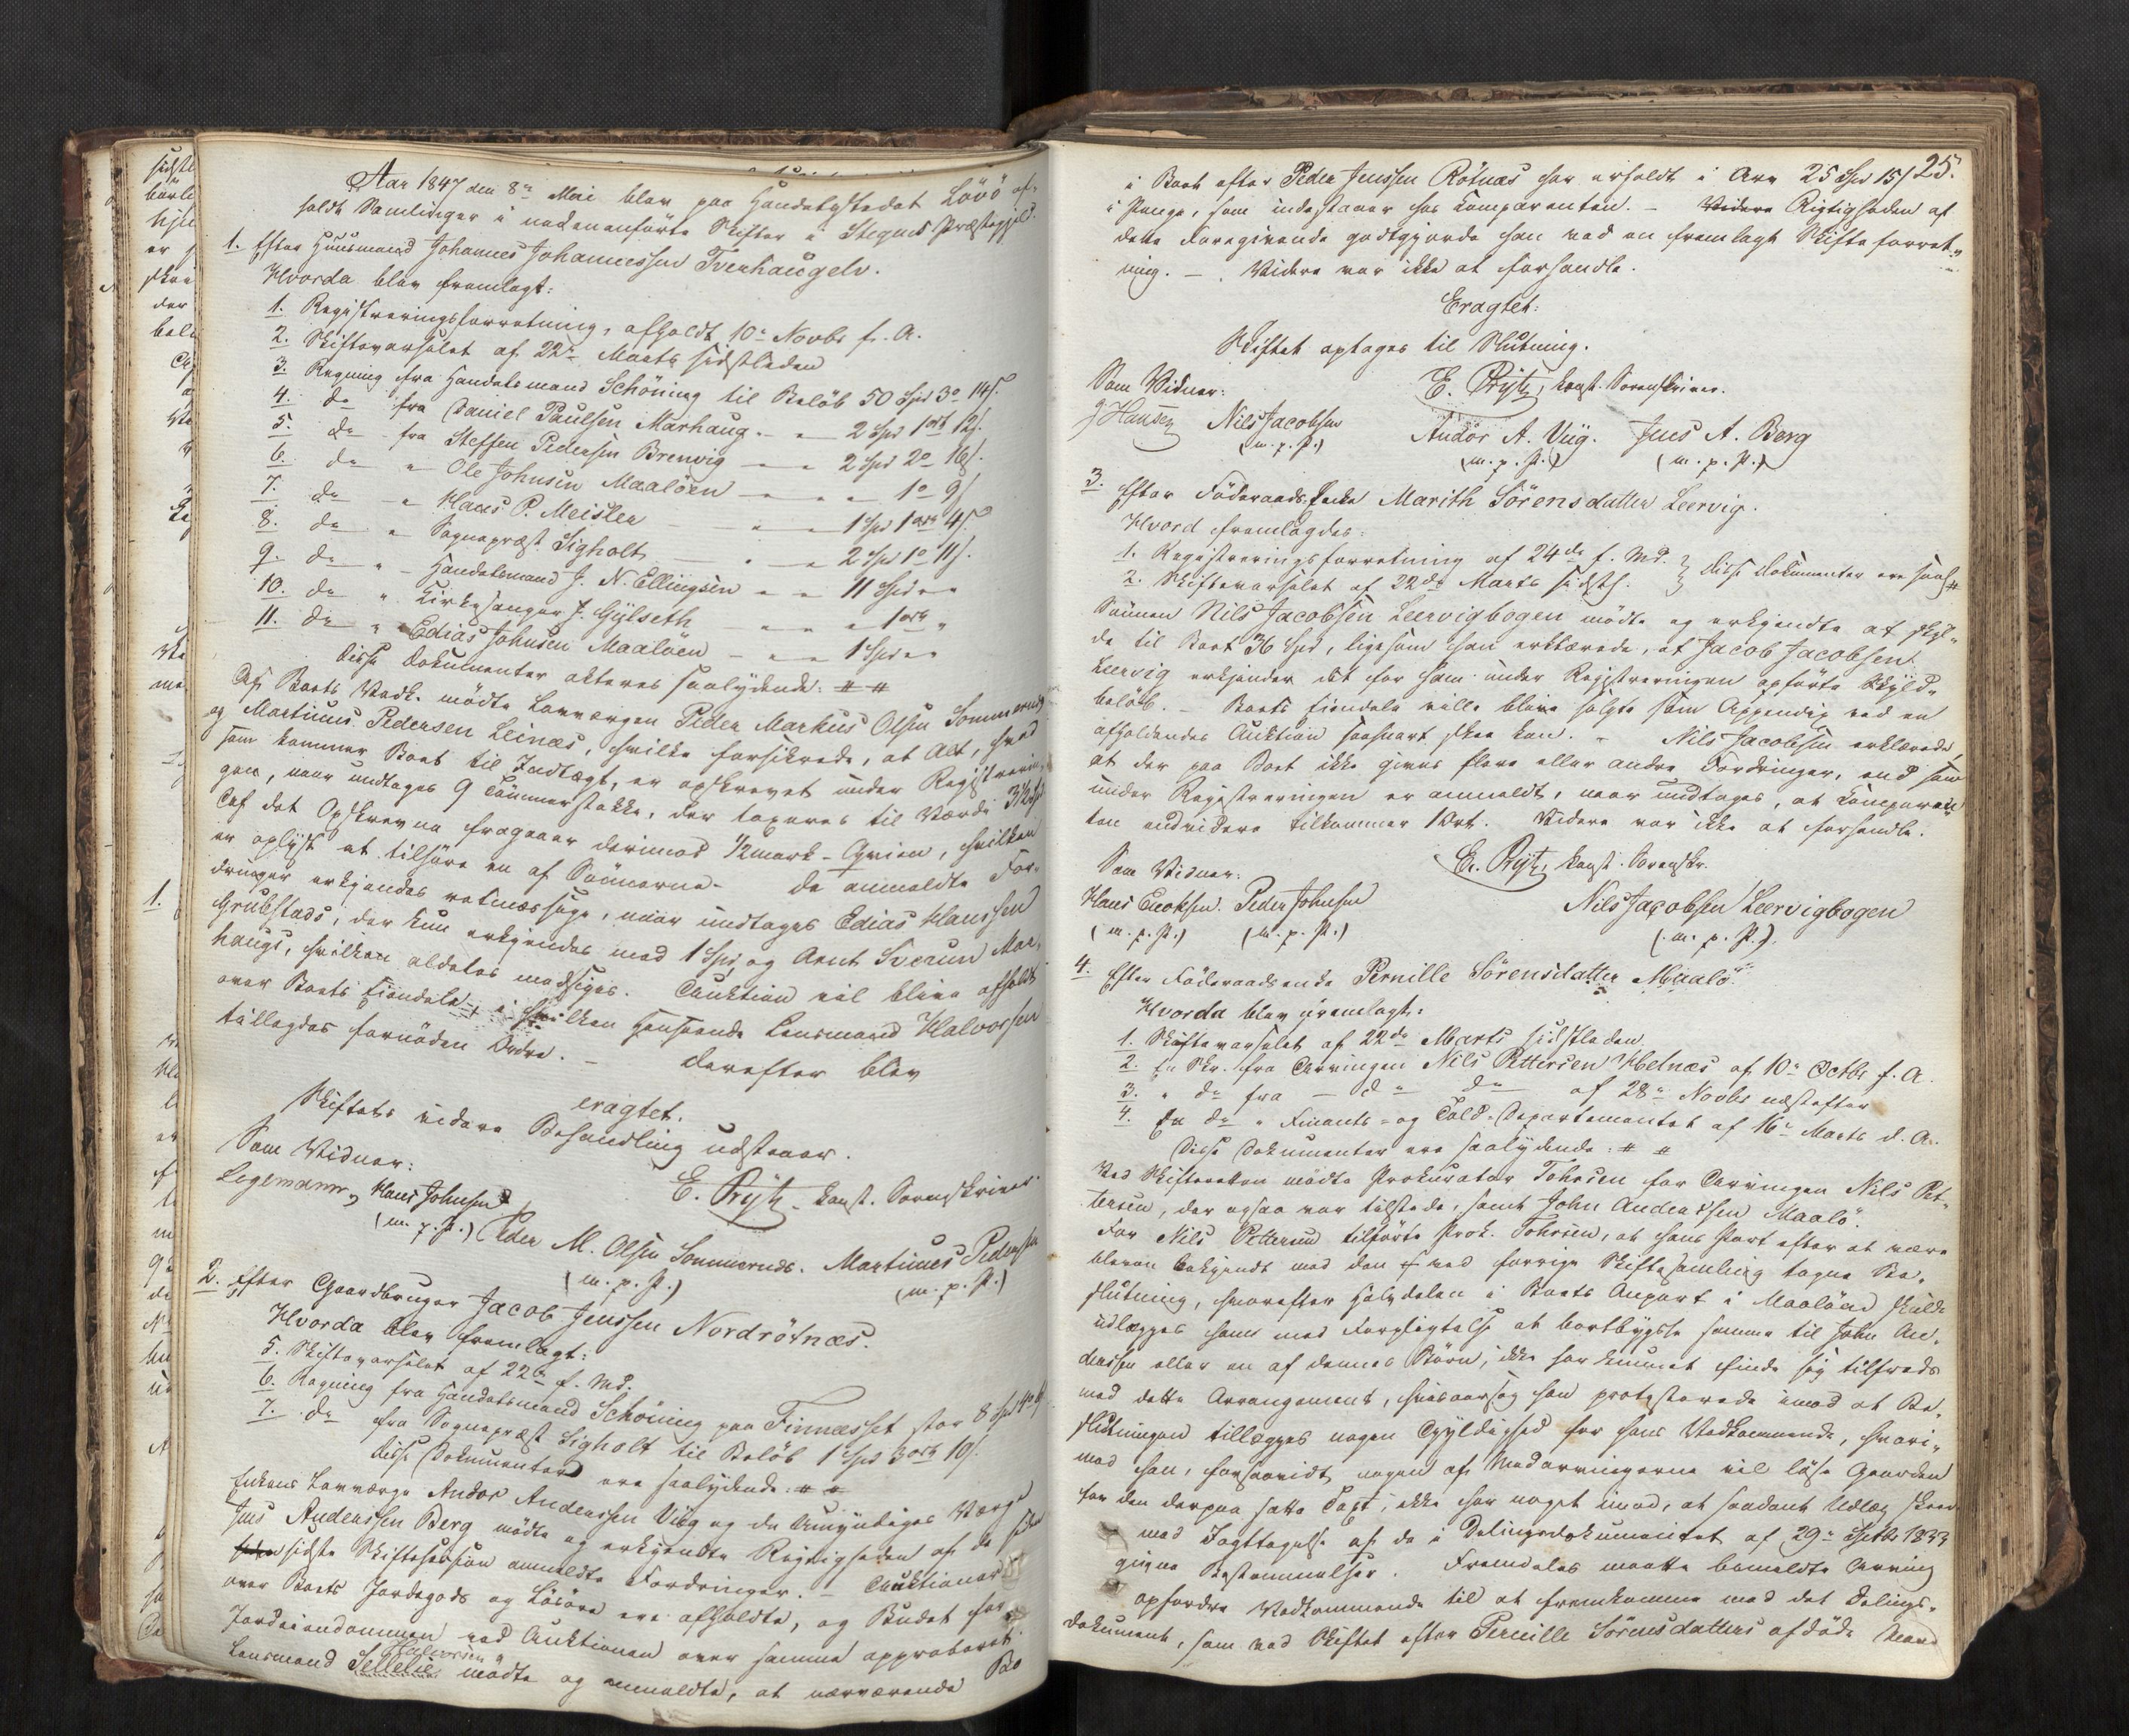 Aar 1847 den 8de Mai blev paa Handelsstedet Lövö af-
holdt Samlinger i nedenanførte Skifter i Stegens Præstegjeld.
1. Efter Huusmand Johannes Johannessen Tverhaugelv.
Hvorda blev fremlagt:
1. Registreringsforretning, afholdt 10de Novbr f. A.
2. Skiftevarselet af 22de Marts sidstleden
3. Regning fra Handelsmand Schöning til Beløb 50 Spd 3o 14s
4. do fra Daniel Paulsen Marhaug. - " 2 Spd 1ort 12s.
5. do fra Steffen Pedersen Brenvig - " 2 Spd 2o 16s.
6. do " Ole Johnsen Maalöen - " - 1o 9s
7. do " Hans P. Meisler " 1 Spd 1ort 4s.
8. do " Sognepræst Sigholt " 2 Spd 1o 11s.
9. do " Handelsmand J. N. Ellingsen " " 11 Spd " "
10. do " Kirkesanger J. Gylseth - " " 1ort "
11. do " Edias Johnsen Maalöen - " " 1 Spd " "
Disse Dokumenter akteres saalydende: # #
Af Boets Vedk. mödte Lavværgen Peder Markus Olsen Sommernes
og Martinus Pedersen Leinæs, hvilke forsikrede, at Alt, hvad
som kommer Boet til Indtægt, er opskrevet under Registrerin-
gen, naar undtages 9 Tömmerstokke, der taxeres til Værdi
Af det Opskrevne fragaaer derimod 1/2 mark-, hvilken
er oplyst at tilhöre en af Sönnerne. De anmeldte For-
dringer erkjendes retmæssige, naar undtages Edias Hanssen
Grubstads, der kun erkjendes med 1 Spd, og Arnt Mar-
haugs, hvilken aldeles modsiges. Auktion vil blive afholdt
over Boets Eiendele, i hvilken Henseende Lensmand Halvorsen
tillagdes fornöden Ordre. - Derefter blev
eragtet:
Skiftets videre Behandling udstaaer.
Som Vidner: E. Prytz, konst. Sorenskriver.
Logemann, Hans Johnsen
(m. p. P.) Peder M. Olsen Sommernæs. Martinus Pedersen
(m. p. P.) (m. p. P.)
2. Efter Gaardbruger Jacob Jenssen Nordrötnæs.
Hvorda blev fremlagt:
5. Skiftevarselet af 22de f. Md.
6. Regning fra Handelsmand Schöning paa Finnæsset stor 8 Spd
7. do fra Sognepræst Sigholt til Beløb 1 Spd 3ort 10s.
Disse Dokumenter ere saalydende: # #
Enkens Lavværge Andor Andersen Viig og de Umyndiges Værge
Jens Andersen Berg mödte og erkjendte Rigtigheden af de siden
sidste Skiftesession anmeldte Fordringer. - Auktioner
over Boets Jordegods og Lösöre ere afholdte, og Budet for
Jordeiendommen ved Auktionen over samme approberet.
Halvorsen
Lensmand Sellelie mödte og anmeldte, at nærværende Bo
25.
i Boet efter Peder Jenssen Rötnæs har arholdt i Arv 25 Spd 15s
i Penge, som indestaaer hos Comparenten. - Videre Rigtigheden af
dette Foregivende godtgjorde han ved en fremlagt Skifteforret-
ning. - Videre var ikke at forhandle.
Eragtet:
Skiftet optages til Slutning.
Som Vidner: E. Prytz, konst. Sorenskriver.
J Hansen Nils Jacobsen Andor A. Viig. Jens A. Berg
(m. p. P.) (m. p. P.) (m. p. P.)
3. Efter Föderaads Enke Marith Sörensdatter Leervig.
Hvord fremlagdes:
1. Registreringsforretning af 24de f. Md. } disse Dokumenter ere saal #
2. Skiftevarselet af 22de Marts sidstl.
Sönnen Nils Jacobsen Leervigbogen mödte og erkjendte at skyl-
de til Boet 36 Spd, ligesom han erklærede, at Jacob Jacobsen
Leervig erkjender det for ham under Registreringen opförte Skyld-
belöb. - Boets Eiendele ville blive solgte som Appendix ved en
afholdendes Auktion saasnart skee kan. - Nils Jacobsen erklærede,
at der paa Boet ikke gives flere eller andre Fordringer, end som
under Registreringen er anmeldt, naar undtages, at Comparen-
ten endvidere tilkommer 1 Ort. Videre var ikke at forhandle.
Som Vidner: E. Prytz, konst. Sorenskr.
Hans Enoksen. Peder Johnsen Nils Jacobsen Leervigbogen
(m. p. P.) (m. p. P.) (m. p. P.)
4. Efter Föderaadsenke Pernille Sörensdatter Maalö.
Hvorda blev fremlagt:
1. Skiftevarselet af 22de Marts sidstleden.
2. En Skr. fra Arvingen Nils Pettersen Helnæs af 10de Octbr f. A.
3. " do fra - do do af 28de Novbr næstefter
4. En do " Finants- og Told-Departementet af 16de Marts d. A.
Disse Dokumenter ere saalydende: # #
Ved Skifteretten mödte Prokurator Tohrsen for Arvingen Nils Pet-
tersen, der ogsaa var tilstede, samt John Anderssen Maalö.
For Nils Pettersen tilförte Prok. Tohrsen, at hans Part efter at være
bleven bekjendt med den ved forrige Skiftesamling tagne Be-
slutning, hvorefter Halvdelen i Boets Anpart i Maalöen skulde
udlægges ham med Forpligtelse at bortbygsle samme til John An-
derssen eller en af dennes Börn, ikke har kunnet finde sig tilfreds
med dette Arrangement, hvisaarsag han protesterede imod at Be-
slutningen tillægges nogen Gyldighed for hans Vedkommende, hvori-
mod han, forsaavidt nogen af Medarvingerne vil löse Gaarden
for den derpaa satte Taxt, ikke har noget imod, at saadant Udlæg skeer
med Iagttagelse af de i Delingsdokumentet af 29de Septbr 1833
givne Bestemmelser. Fremdeles maatte bemeldte Arving
opfordre Vedkommende til at fremkomme med det Delings-
dokument, som ved Skiftet efter Pernille Sörensdatters afdöde Mand